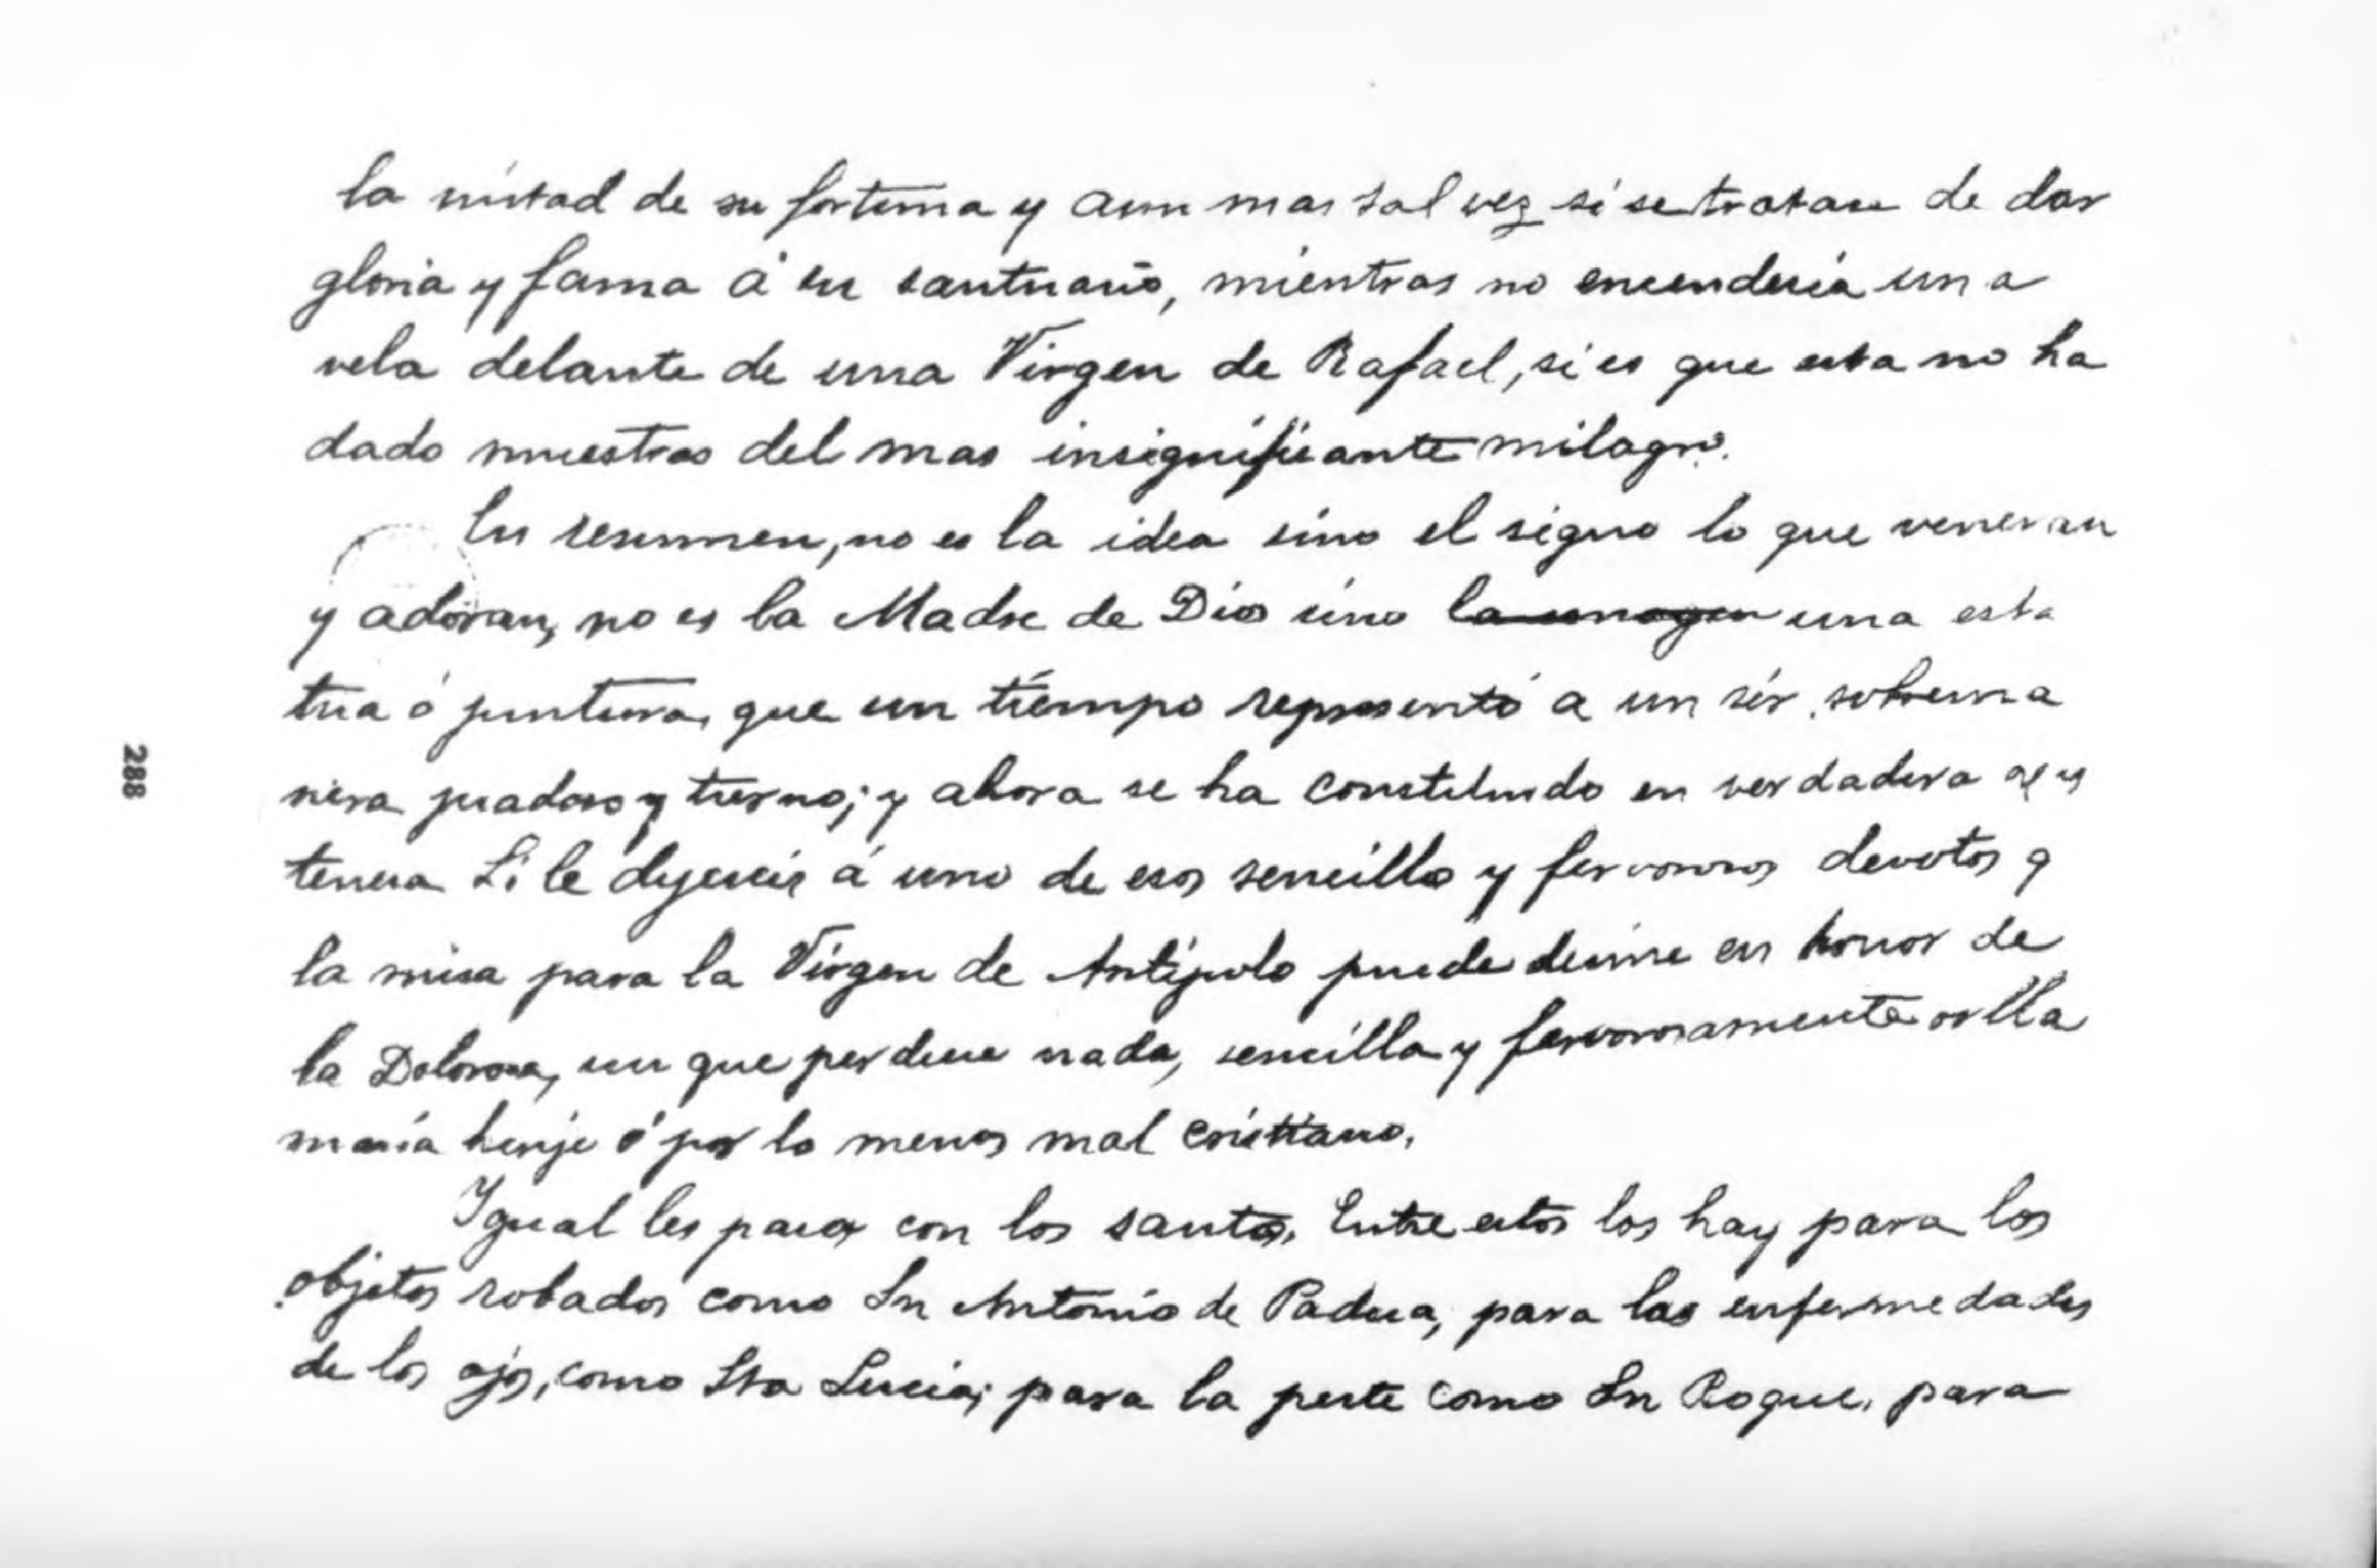 la mitad de su fortuna y aun mas tal vez si se tratase de dar
gloria y fama á su santuario, mientras no encenderia una
vela delante de una Virgen de Rafael, si es que esta no ha
dado muestras del mas insignificante milagro.
En resumen, no es la idea sino el signo lo que veneran
y adoran, no es la Madre de Dios sino la imagen una esta
tua ó pintura, que un tiempo representó a un sér sobrema
nera piadoso y tierno; y ahora se ha constituido en verdadera
Si le dijereis á uno de esos sencillos y fervorosos devotos q
la misa para la Virgen de Antipolo puede decirse en honor de
la Dolorosa, sin que perdiese nada, sencilla y fervorosamente os lla
maria hereje ó por lo menos mal cristiano.
Igual les pasa con los santos. Entre estos los hay para los
objetos robados como Sn Antonio de Padua, para las enfermedades
de los ojos, como Sta Lucia; para la peste como Sn Roque, para
288